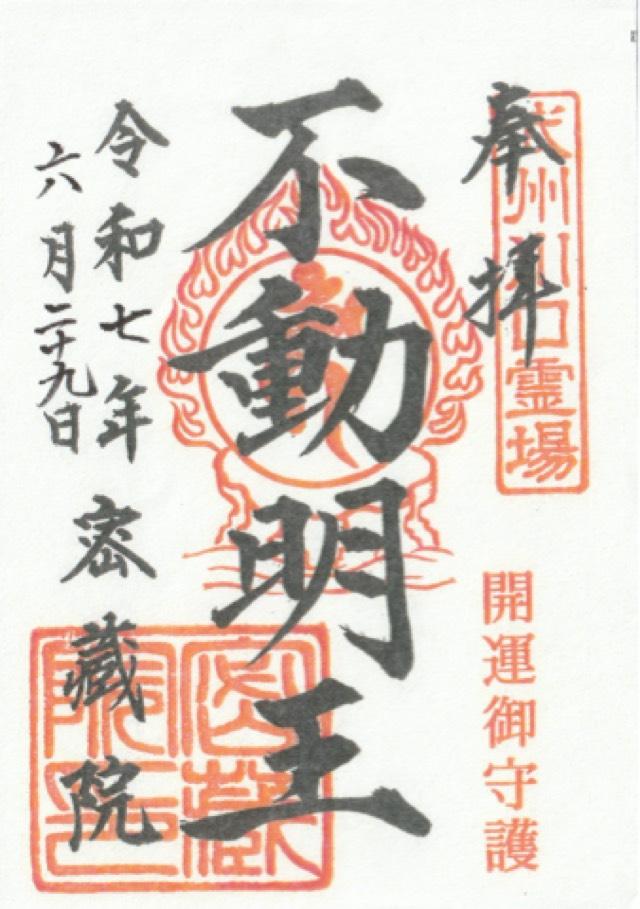 奉拝
武州川口霊場
開運御守護
不動明王
令和七年
六月二十九日
密蔵院